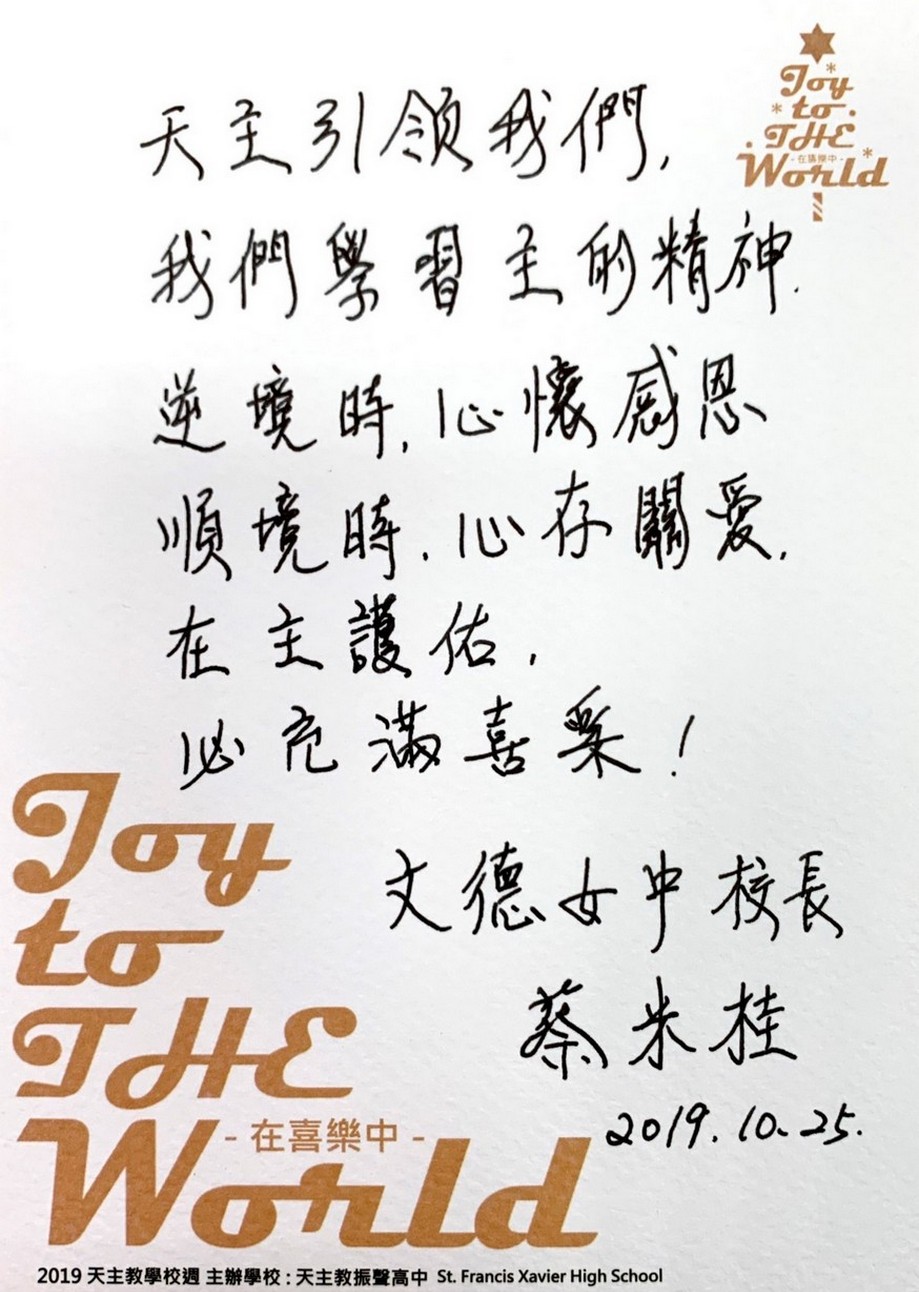 Joy
to
THE
-在喜樂中-
World
天主引領我們,
我們學習主的精神.
逆境時,心懷感恩
順境時.心存關愛,
在主護佑,
必充滿喜樂!
文德女中校長
蔡米桂
2019.10.25.
Joy
to
THE
-在喜樂中-
World
2019 天主教學校週 主辦學校:天主教振聲高中 St. Francis Xavier High School